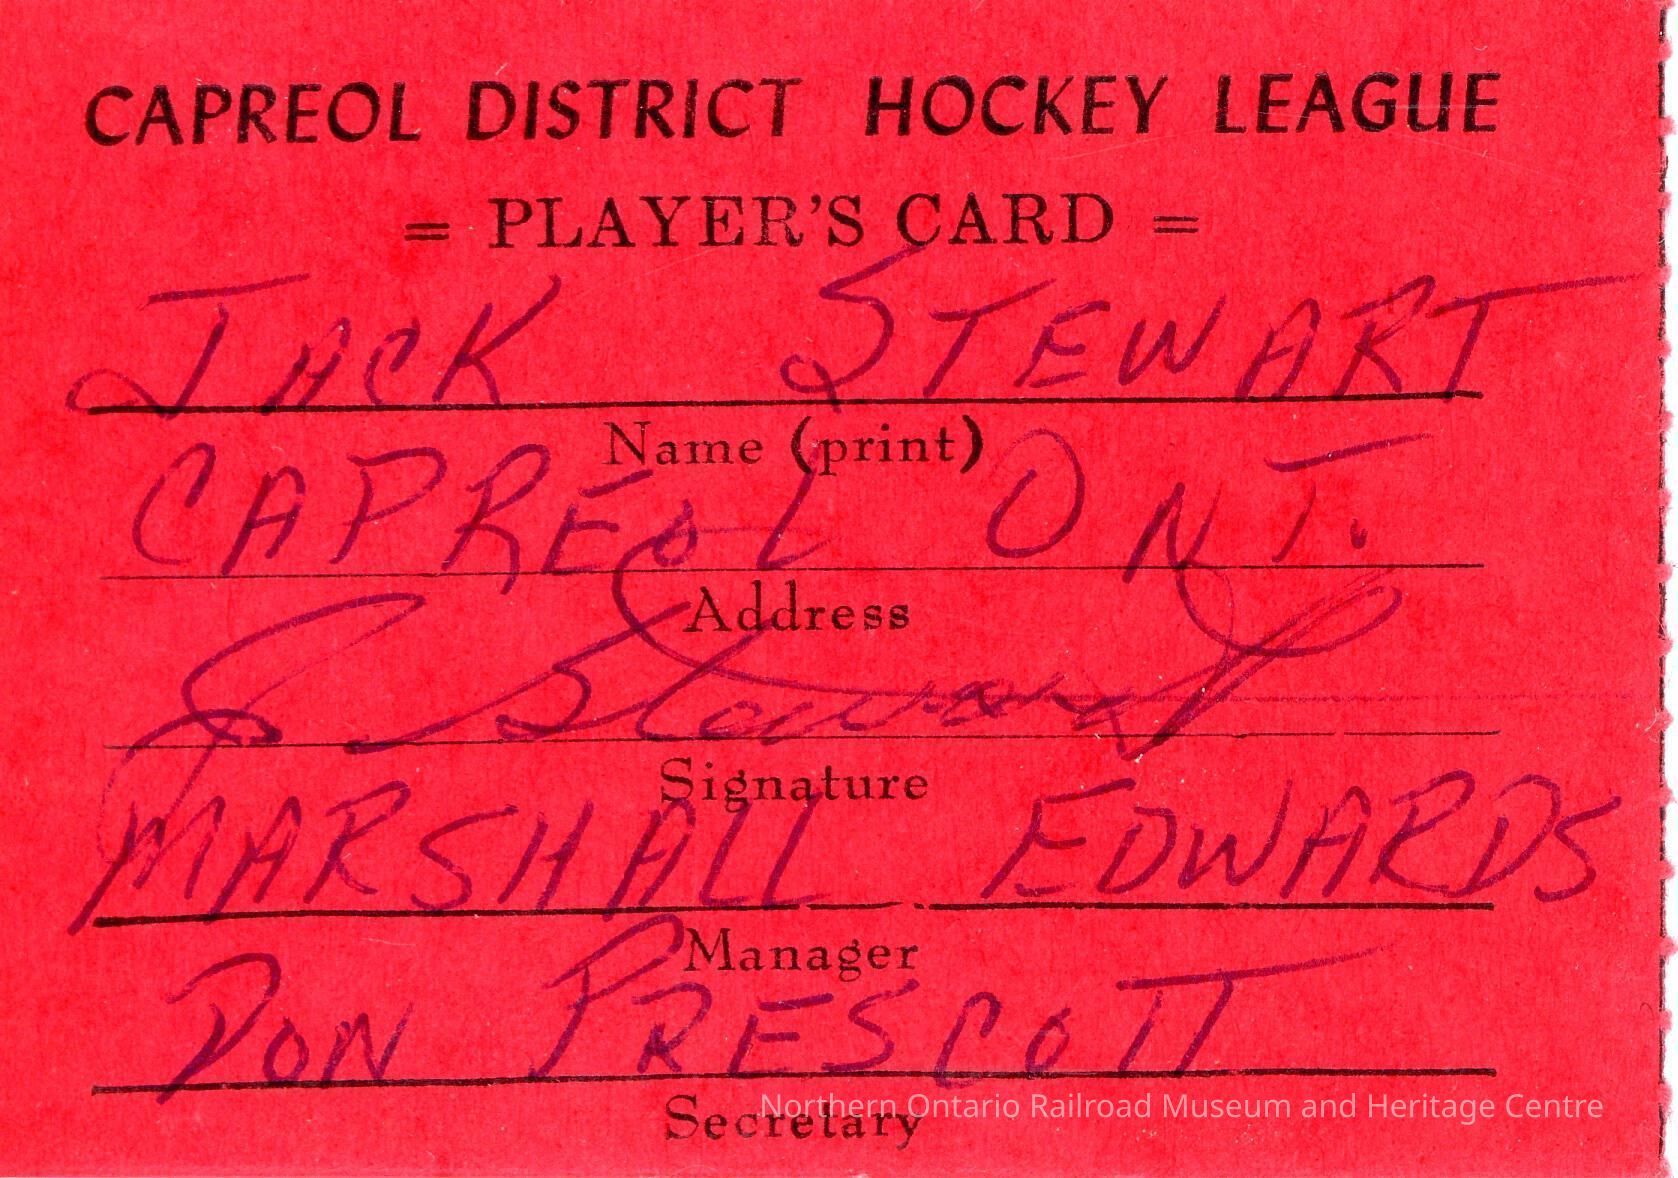 CAPREOL DISTRICT HOCKEY LEAGUE
= PLAYER'S CARD =
JACK STEWART
Name (print)
CAPREOL ONT.
Address
J Stewart
Signature
MARSHALL EDWARDS
Manager
DON PRESCOTT
Secretary
Northern Ontario Railroad Museum and Heritage Centre